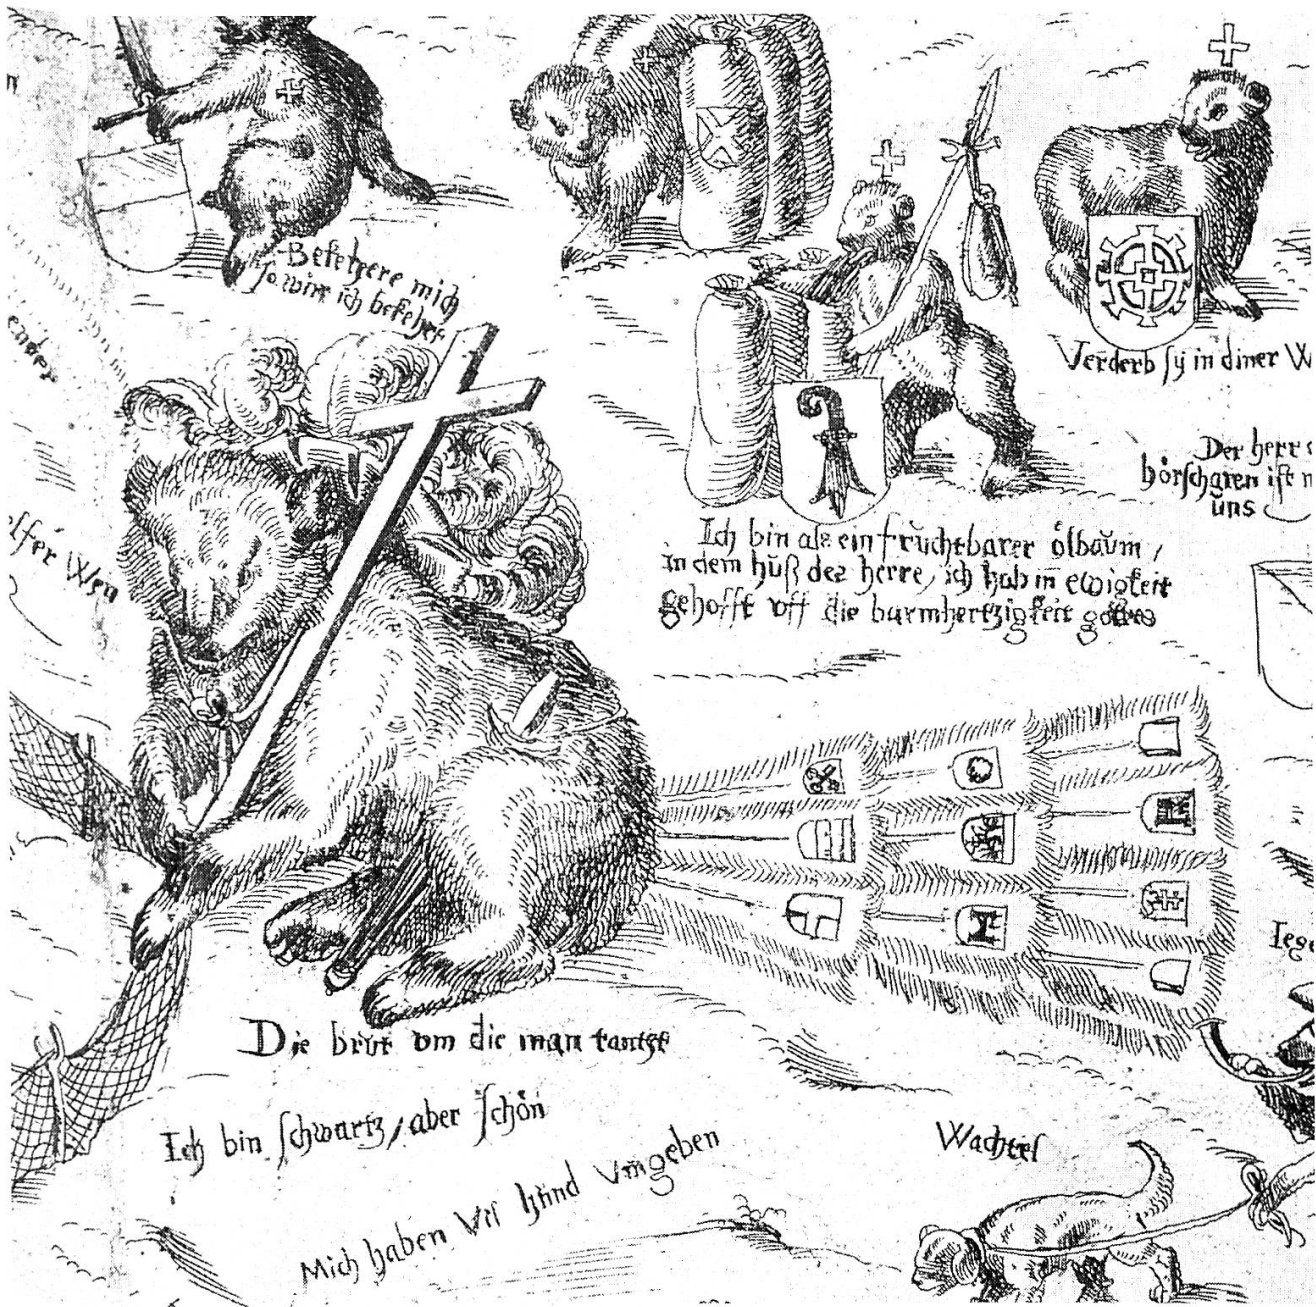 Bekehere mich
so wirt ich bekehrt
ender
Verderb sy in diner W
Der herr
hörscharen ist
uns
Ich bin als ein fruchtbarer ölbaum,
in dem huß des herre, ich hab in ewigkeit
gehofft uff die barmhertzigkeit gottes
Die brut um die man tantzt
Ich bin schwartz, aber schön
Mich haben vil hünd umgeben
Wachtel